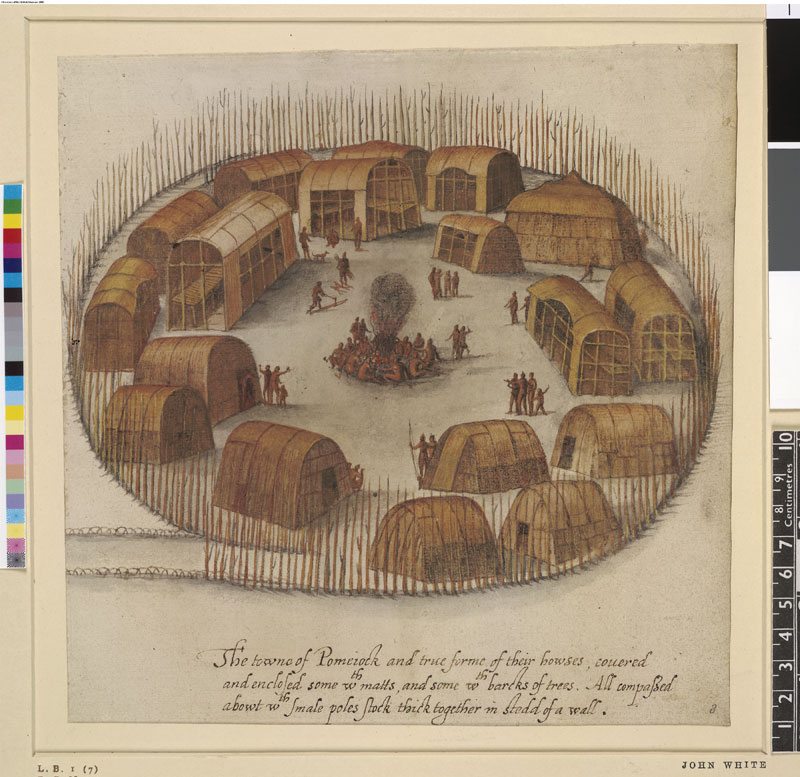 The towne of Pomeiock and true forme of their howses, couered
and enclosed some wth matts, and some wth barcks of trees. All compassed
abowt wth smale poles stock thick together in stedd of a wall.
8
L. B. 1 (7)
JOHN WHITE
1 2 3 4 5 6 7 8 9 10
Centimetres